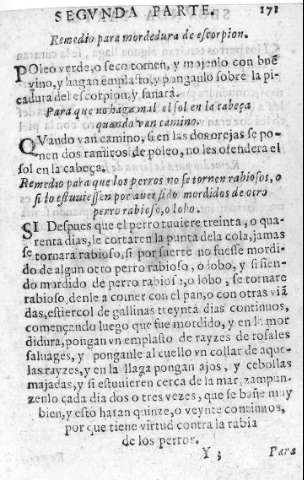 SEGVNDA PARTE. 171
Remedio para mordedura de escorpion.
POleo verde, o seco tomen, y mojenlo con buē
vino, y hagan emplasto, y pongaulo sobre la pi-
cadura del escorpion, y sanarà.
Para que no haga mal el sol en la cabeça
quando van camino.
QVando van camino, si en las dos orejas se po-
nen dos ramitos de poleo, no les ofendera el
sol en la cabeça.
Remedio para que los perros no se tornen rabiosos, o
si lo estuuiessen por auer sido mordidos de otro
perro rabioso, o lobo.
SI Despues que el perro tuuiere treinta, o qua-
renta dias, le cortaren la punta dela cola, jamas
se tornara rabioso, si por suerte no fuesse mordi-
do de algun otro perro rabioso, o lobo, y si sien-
do mordido de perro rabioso, o lobo, se tornare
rabioso, denle a comer con el pan, con otras viā
das, estiercol de gallinas treynta dias continuos,
començando luego que fue mordido, y en la mor
didura, pongan vn emplasto de rayzes de rosales
saluages, y ponganle al cuello vn collar de aque-
las rayzes, y en la llaga pongan ajos, y cebollas
majadas, y si estuuieren cerca de la mar, zampun-
zenlo cada dia dos o tres vezes, que se bañe muy
bien, y esto haran quinze, o veynte continuos,
por que tiene virtud contra la rabia
de los perros.
Y 3 Para